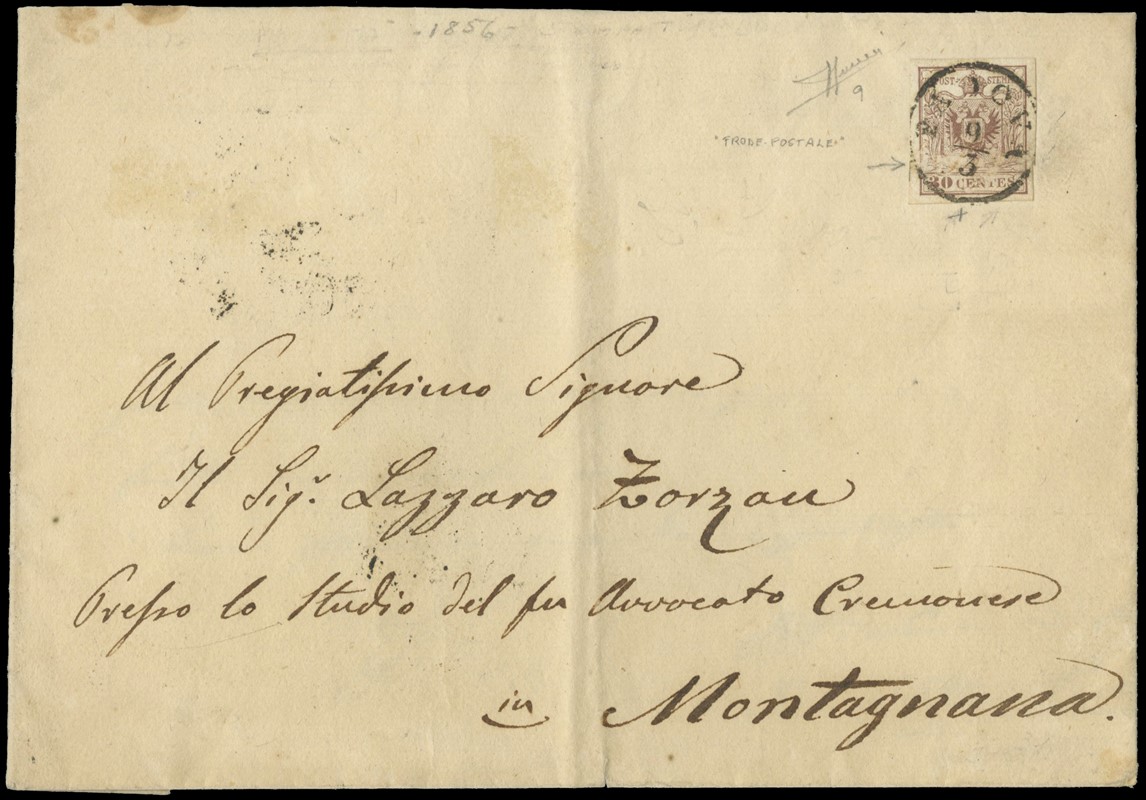 - 1856 -
9
"FRODE POSTALE"
POST-STEMPEL
PADOVA
9
3
30 CENTES
Al Pregiatissimo Signore
Il Sigr. Lazzaro Zorzan
Presso lo Studio del fu Avvocato Cremonese
in Montagnana.